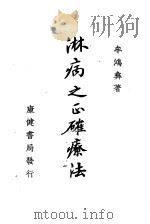 牟鴻彝著
淋病之正確療法
康健書局發行